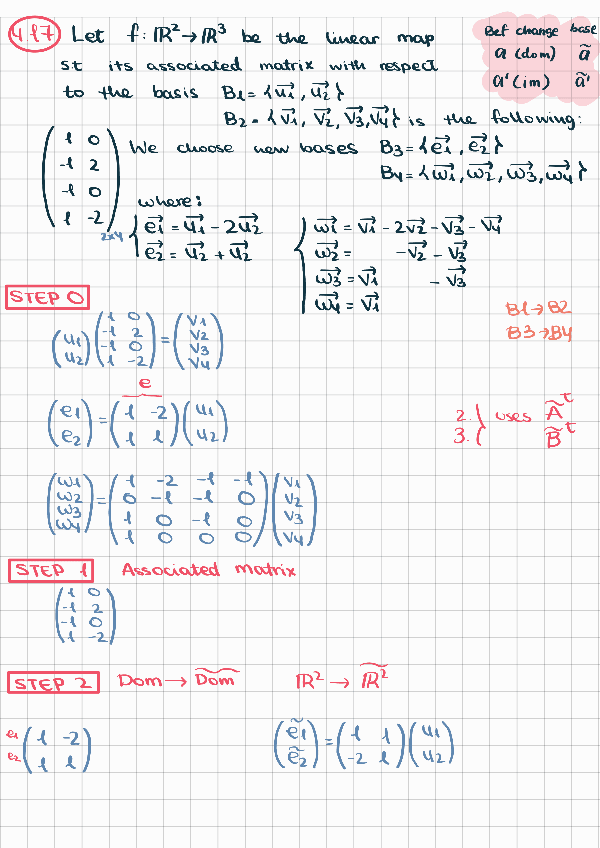 4.17 Let f: ℝ² → ℝ³ be the linear map
st its associated matrix with respect
to the basis B1 = {u1, u2}
B2 = {v1, v2, v3, v4} is the following:
Ref change base
a (dom) ã
a' (im) ã'
( 1 0
-1 2
-1 0
1 -2 ) 2x4
We choose new bases B3 = {e1, e2}
B4 = {w1, w2, w3, w4}
where:
e1 = u1 - 2u2
e2 = u2 + u2
w1 = v1 - 2v2 - v3 - v4
w2 = -v2 - v3
w3 = v1 - v3
w4 = v1
STEP 0
B1 → B2
B3 → B4
(u1 u2) ( 1 0
-1 2
-1 0
1 -2 ) = ( v1 v2 v3 v4 )
e
( e1 e2 ) = ( 1 -2
1 1 ) ( u1 u2 )
2. 3. } uses Ã^t
B̃^t
( w1 w2 w3 w4 ) = ( 1 -2 -1 -1
0 -1 -1 0
1 0 -1 0
1 0 0 0 ) ( v1 v2 v3 v4 )
STEP 1 Associated matrix
( 1 0
-1 2
-1 0
1 -2 )
STEP 2 Dom → D̃om ℝ² → ℝ̃²
e1 ( 1 -2
e2 1 1 )
( ẽ1 ẽ2 ) = ( 1 1
-2 1 ) ( u1 u2 )